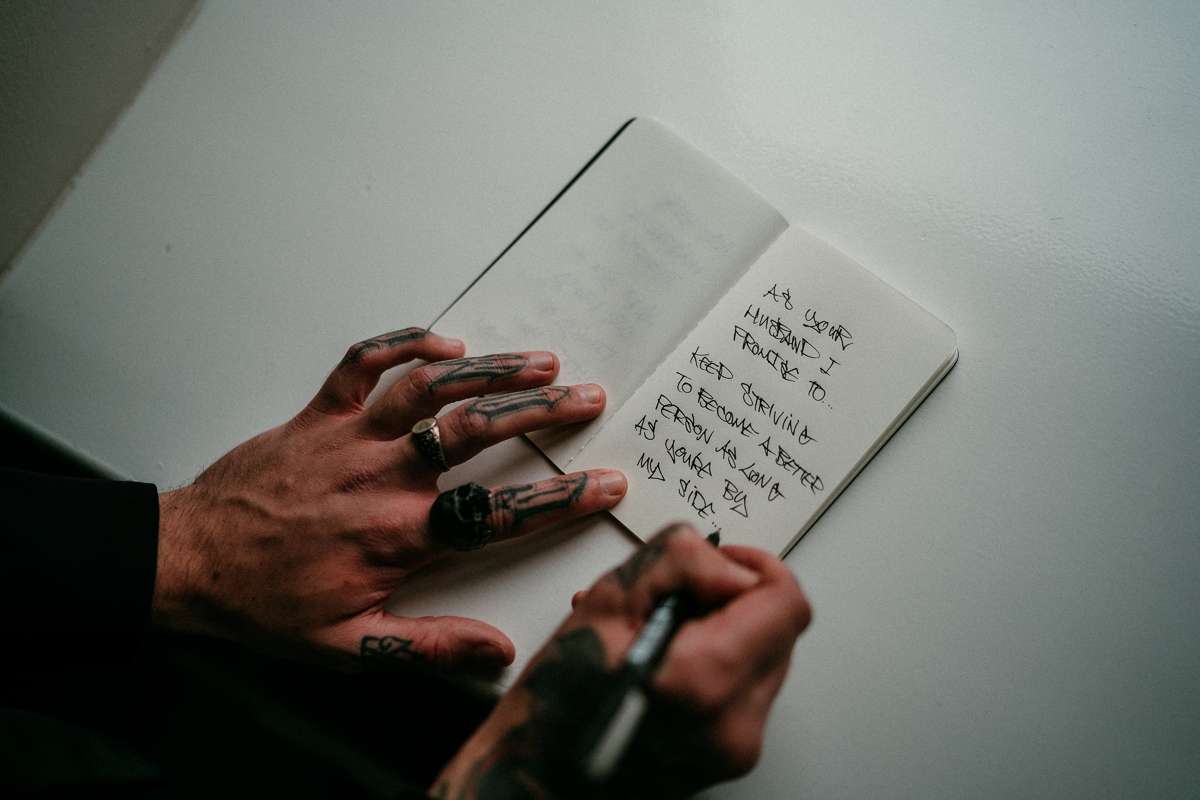 AS YOUR
HUSBAND I
PROMISE TO...
KEEP STRIVING
TO BECOME A BETTER
PERSON AS LONG
AS YOURE BY
MY SIDE...